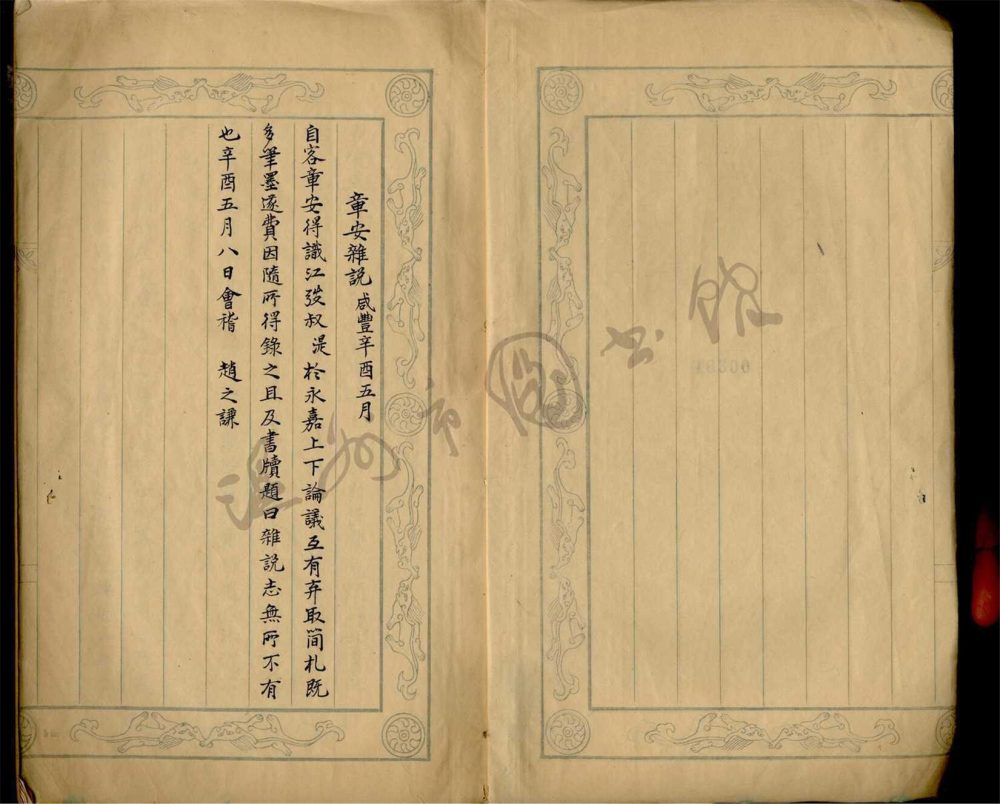 章安雜說 咸豐辛酉五月
自客章安得識江弢叔湜於永嘉上下論議互有弃取簡札既
多筆墨遂費因隨所得錄之且及書牘題曰雜說志無所不有
也辛酉五月八日會稽 趙之謙
温州市圖书館